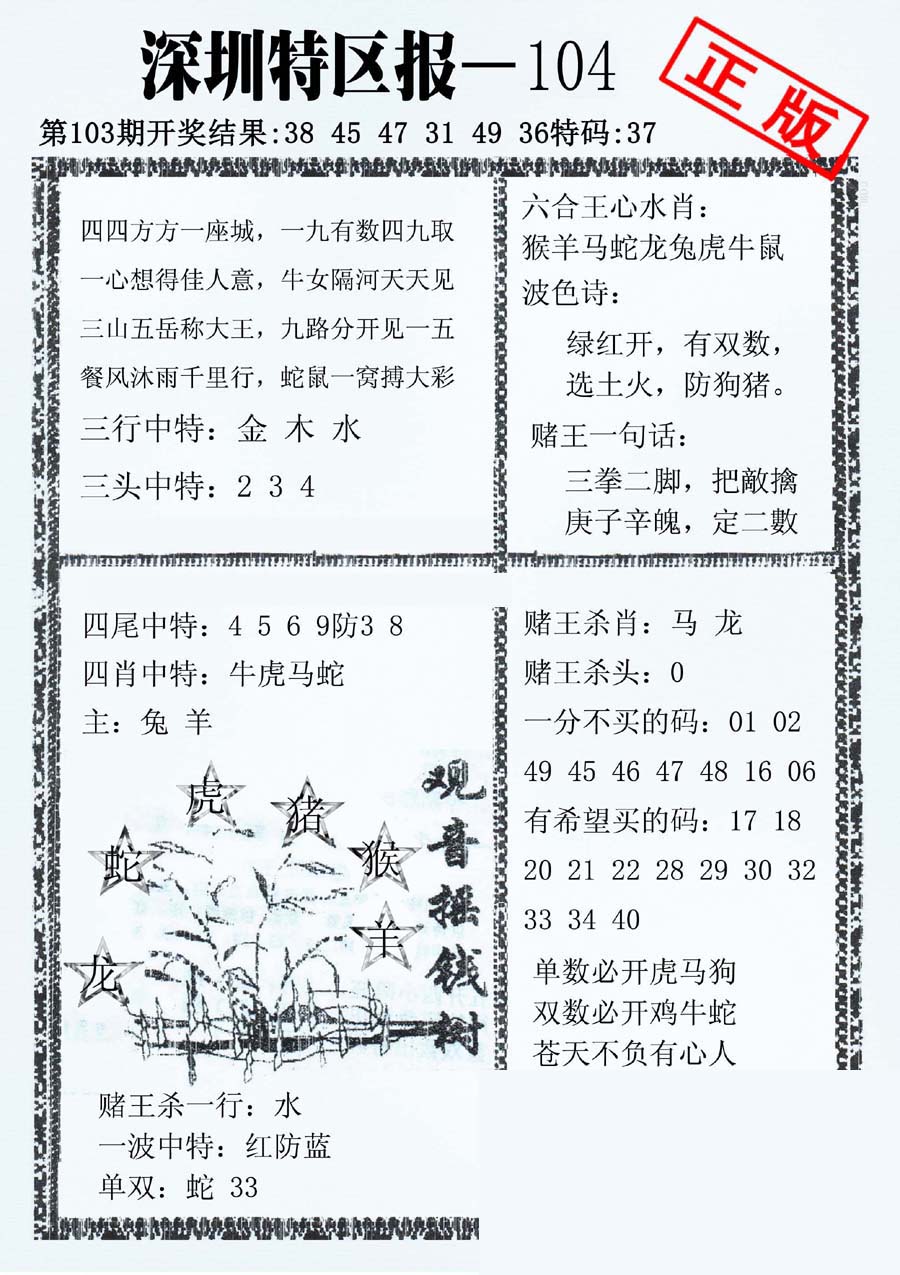 深圳特区报—104
正版
第103期开奖结果:38 45 47 31 49 36特码:37
四四方方一座城，一九有数四九取
一心想得佳人意，牛女隔河天天见
三山五岳称大王，九路分开见一五
餐风沐雨千里行，蛇鼠一窝搏大彩
三行中特：金 木 水
三头中特：2 3 4
六合王心水肖：
猴羊马蛇龙兔虎牛鼠
波色诗：
绿红开，有双数，
选土火，防狗猪。
赌王一句话：
三拳二脚，把敵擒
庚子辛魄，定二數
四尾中特：4 5 6 9防3 8
四肖中特：牛虎马蛇
主：兔 羊
虎
猪
蛇
猴
羊
龙
观音摇钱树
赌王杀一行：水
一波中特：红防蓝
单双：蛇 33
赌王杀肖：马 龙
赌王杀头：0
一分不买的码：01 02
49 45 46 47 48 16 06
有希望买的码：17 18
20 21 22 28 29 30 32
33 34 40
单数必开虎马狗
双数必开鸡牛蛇
苍天不负有心人